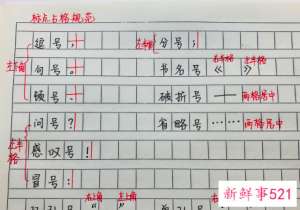 标点占格规范
逗号, 左下角 分号;
左下角 句号。 书名号《》 左半格 右半格
顿号、 破折号—— 两格居中
问号? 省略号…… 两格居中
左半格 感叹号!
冒号:
右上角 左上角
新鲜事521